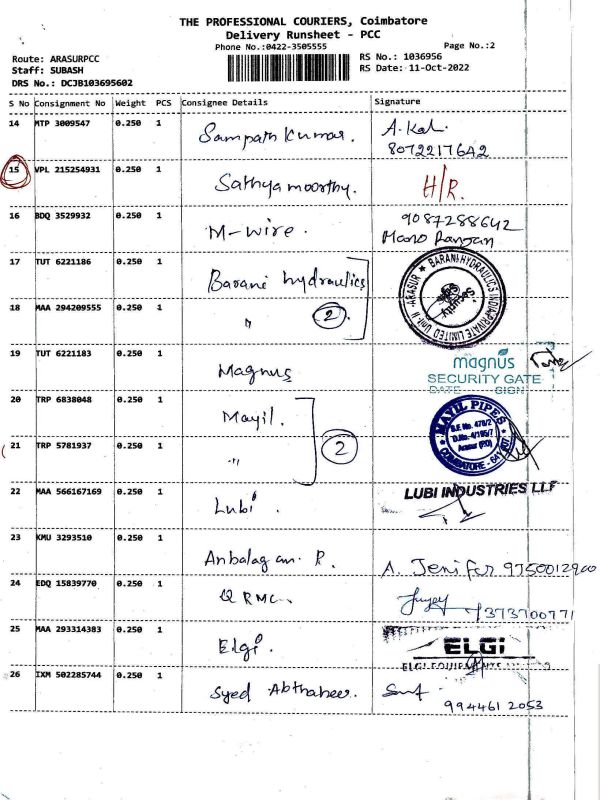 THE PROFESSIONAL COURIERS, Coimbatore
Delivery Runsheet - PCC
Phone No.:0422-3505555
Page No.:2
Route: ARASURPCC
Staff: SUBASH
DRS No.: DCJB103695602
RS No.: 1036956
RS Date: 11-Oct-2022
S No Consignment No Weight PCS Consignee Details Signature
14 MTP 3009547 0.250 1 Sampath Kumar. A. Kal
8072217642
15 VPL 215254931 0.250 1 Sathya moorthy. H/R.
16 BDQ 3529932 0.250 1 M-wire. 9087288642
Mano Ranjan
17 TUT 6221186 0.250 1 Barani hydraulics
BARANI HYDRAULICS INDIA PRIVATE LIMITED Unit-II -ARASUR
Security
18 MAA 294209555 0.250 1 " 2
19 TUT 6221183 0.250 1 Magnus
magnus
SECURITY GATE
DATE SIGN
20 TRP 6838048 0.250 1 Mayil.
MAYIL PIPES
S.F. No. 478/2
D.No. 4/195/7
Arasur (PO)
COIMBATORE - 641 407
21 TRP 5781937 0.250 1 " 2
22 MAA 566167169 0.250 1 Lubi. LUBI INDUSTRIES LLP
23 KMU 3293510 0.250 1 Anbalagan. R. A. Jenifer 9750012900
24 EDQ 15839770 0.250 1 QRMC. 7373700771
25 MAA 293314383 0.250 1 Elgi. ELGi
ELGI EQUIPMENTS
26 IXM 502285744 0.250 1 Syed Abthaheer.
994461 2053